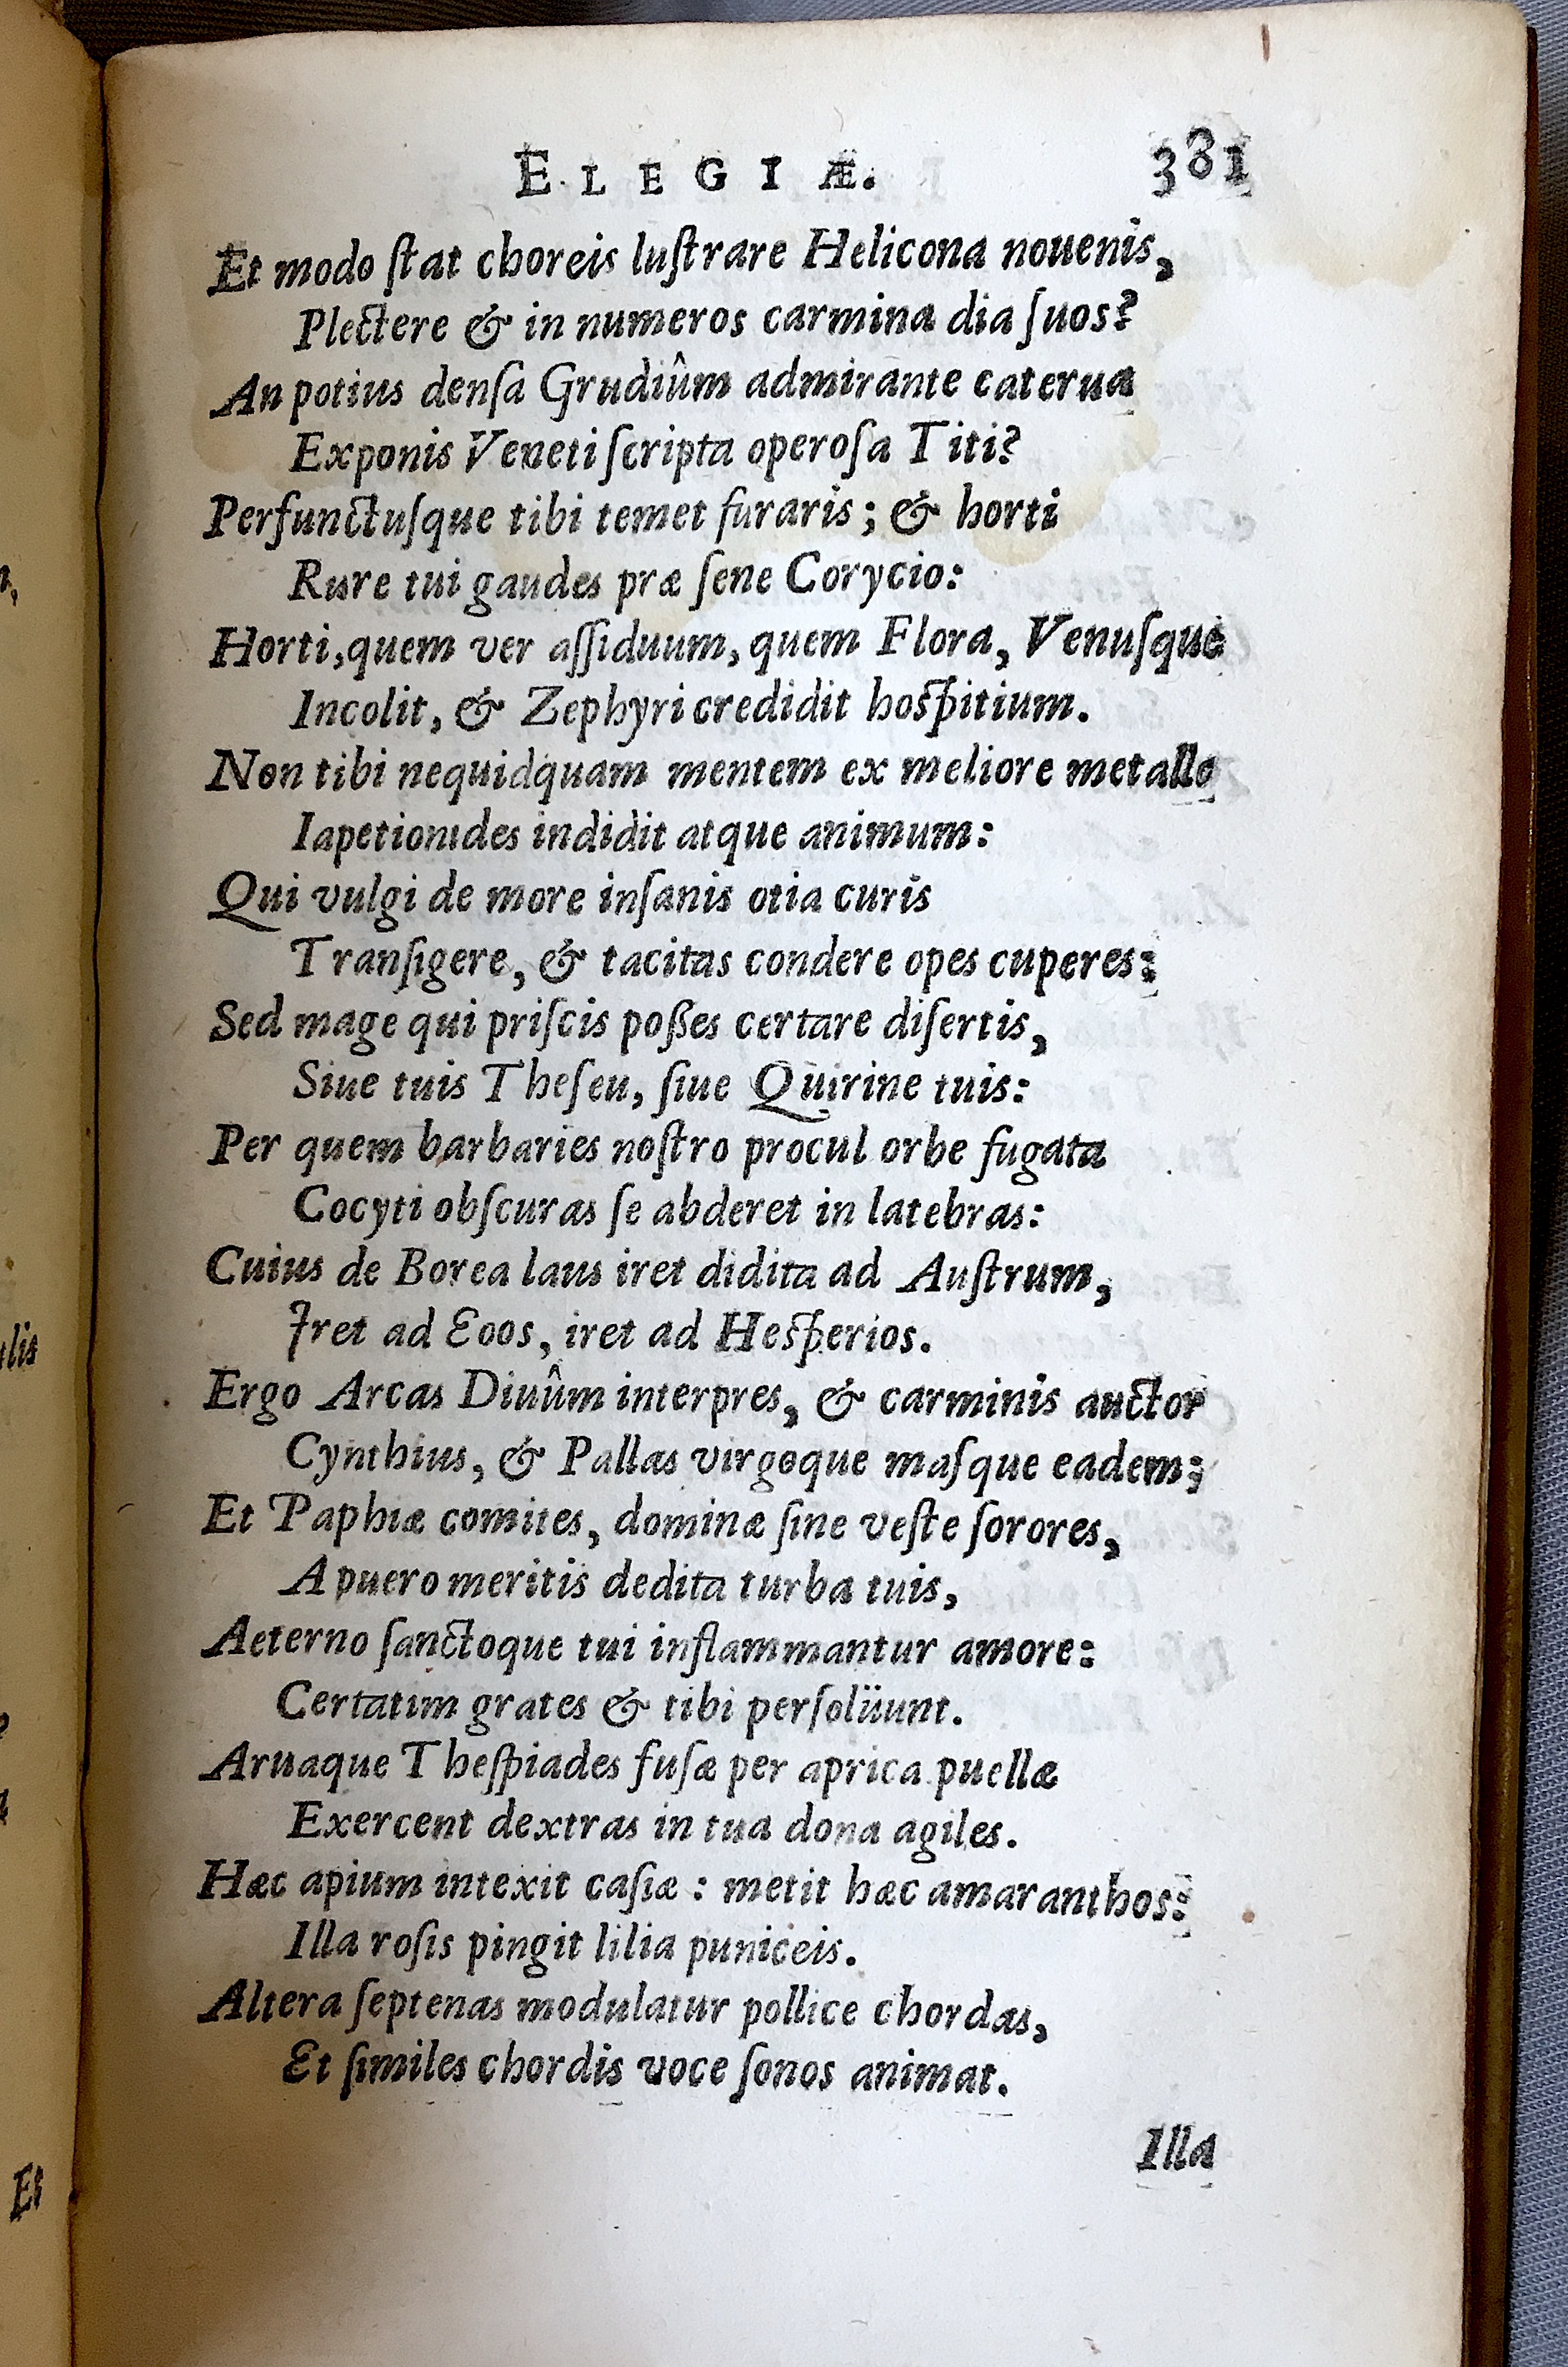 ELEGIÆ. 381
Et modo ſtat choreis luſtrare Helicona nouenis,
Plectere & in numeros carmina dia ſuos?
An potius denſa Grudiûm admirante caterua
Exponis Veneti ſcripta operoſa Titi?
Perfunctuſque tibi temet furaris; & horti
Rure tui gaudes præ ſene Corycio:
Horti, quem ver aſſiduum, quem Flora, Venuſque
Incolit, & Zephyri credidit hoſpitium.
Non tibi nequidquam mentem ex meliore metallo
Iapetionides indidit atque animum:
Qui vulgi de more inſanis otia curis
Tranſigere, & tacitas condere opes cuperes:
Sed mage qui priſcis poßes certare diſertis,
Siue tuis Theſeu, ſiue Quirine tuis:
Per quem barbaries noſtro procul orbe fugata
Cocyti obſcuras ſe abderet in latebras:
Cuius de Borea laus iret didita ad Auſtrum,
Iret ad Eoos, iret ad Heſperios.
Ergo Arcas Diuûm interpres, & carminis auctor
Cynthius, & Pallas virgoque maſque eadem;
Et Paphiæ comites, dominæ ſine veſte ſorores,
A puero meritis dedita turba tuis,
Aeterno ſanctoque tui inflammantur amore:
Certatim grates & tibi perſolüunt.
Aruaque Theſpiades fuſæ per aprica puellæ
Exercent dextras in tua dona agiles.
Hæc apium intexit caſiæ : metit hæc amaranthos:
Illa roſis pingit lilia puniceis.
Altera ſeptenas modulatur pollice chordas,
Et ſimiles chordis voce ſonos animat.
Illa
lis
Et